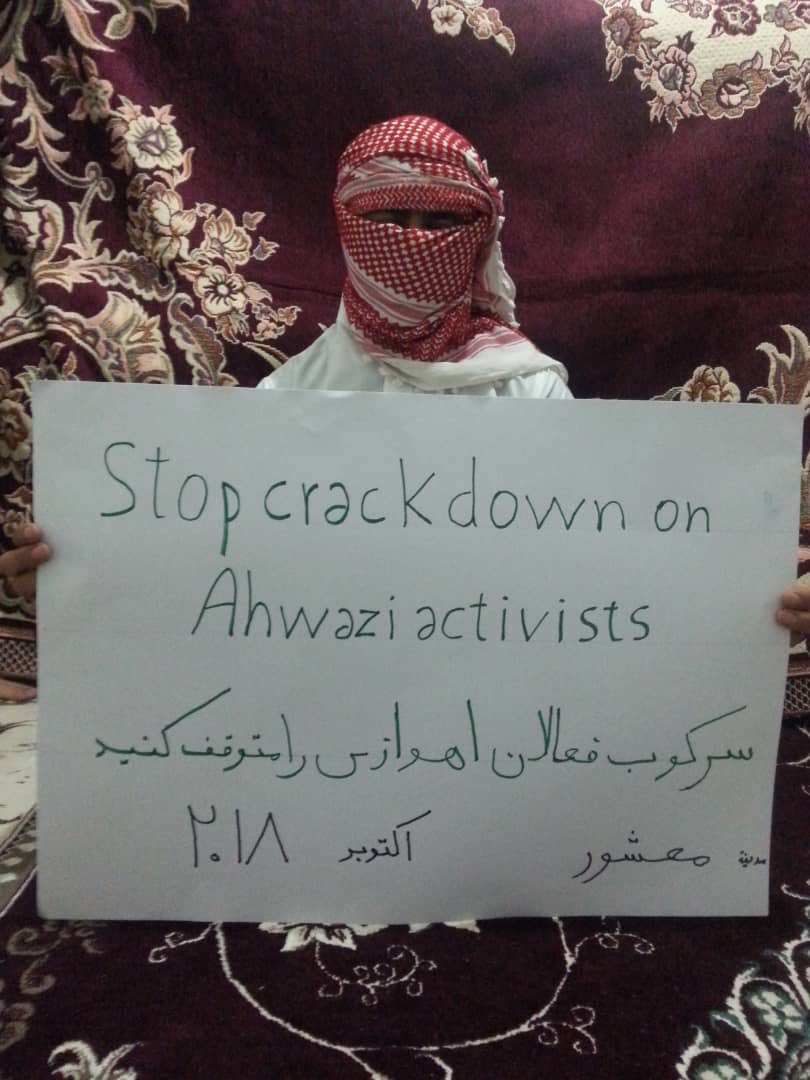 Stop crackdown on
Ahwazi activists
سرکوب فعالان اهوازی را متوقف کنید
مدينة معشور اکتوبر ۲۰۱۸